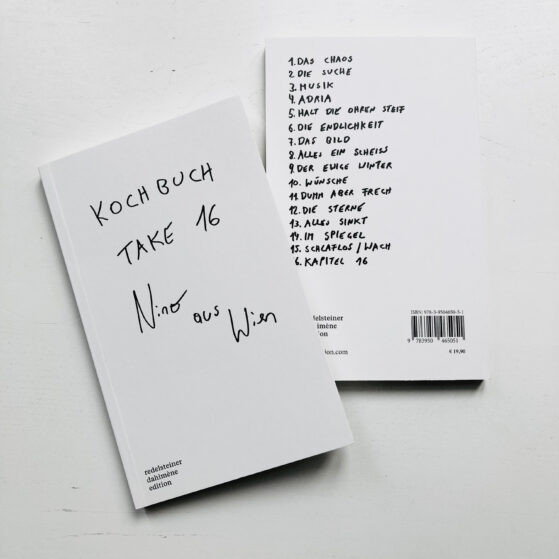 KOCHBUCH
TAKE 16
Nino aus Wien
redelsteiner
dahlmène
edition
1. DAS CHAOS
2 DIE SUCHE
3. MUSIK
4. ADRIA
5. HALT DIE OHREN STEIF
6. DIE ENDLICHKEIT
7. DAS BILD
8. ALLES EIN SCHEISS
9. DER EWIGE WINTER
10. WÜNSCHE
11. DUMM ABER FRECH
12. DIE STERNE
13. ALLES SINKT
14. IM SPIEGEL
15. SCHLAFLOS / WACH
6. KAPITEL 16
delsteiner
dahlmène
ition
ition.com
9 783950 465051
€ 19,90